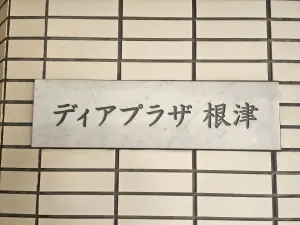 ディアプラザ 根津